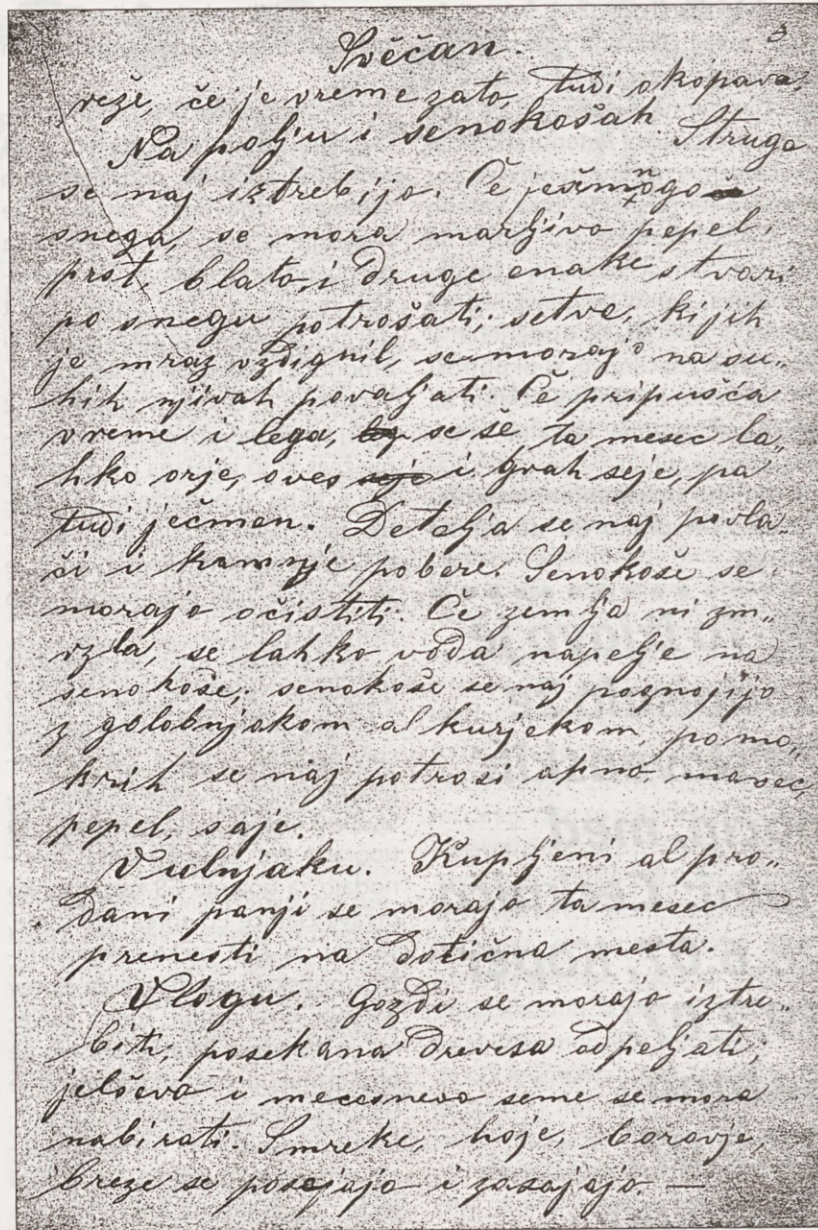 3
Svečan.
reže, če je vreme zato, tudi okopava.
Na polju i senokošah. Struga
se naj iztrebijo. Če je mnogo
snega, se mora marljivo pepel,
prst, blato, i druge enake stvari
po snegu potrošati; setve, ki jih
je mraz vzdignil, se morajo na su„
hih njivah povaljati. Če pripušča
vreme i lega, se še ta mesec la„
hko orje, oves i grah seje, pa
tudi ječmen. Detelja se naj povla„
či i kamnje pobere. Senokoše se
morajo očistiti. Če zemlja ni zm„
rzla, se lahko voda napelje na
senokoše; senokoše se naj pognojijo
z golobnjakom al kurjekom, po mo„
krih se naj potrosi apno, mavec,
pepel, saje.
V ulnjaku. Kupljeni al pro„
dani panji se morajo ta mesec
prenesti na dotična mesta.
V logu. Gozdi se morajo iztre„
biti, posekana drevesa odpeljati;
jelševo i mecesnevo seme se mora
nabirati. Smreke, hoje, borovje,
breze se posejajo i zasajajo. —